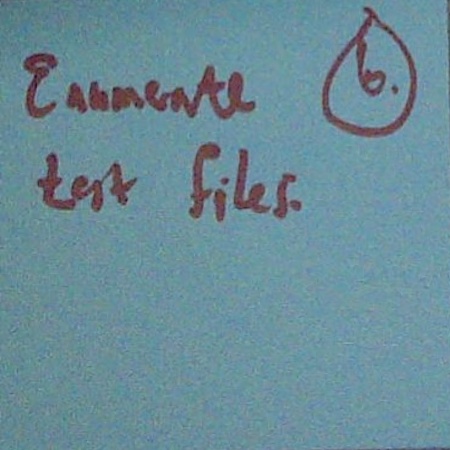 Enumerate
test files.
6.